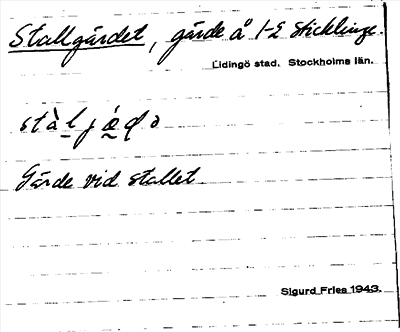 Stallgärdet, gärde å 1-2 Sticklinge.
Lidingö stad. Stockholms län.
Gärde vid stallet.
Sigurd Fries 1943.